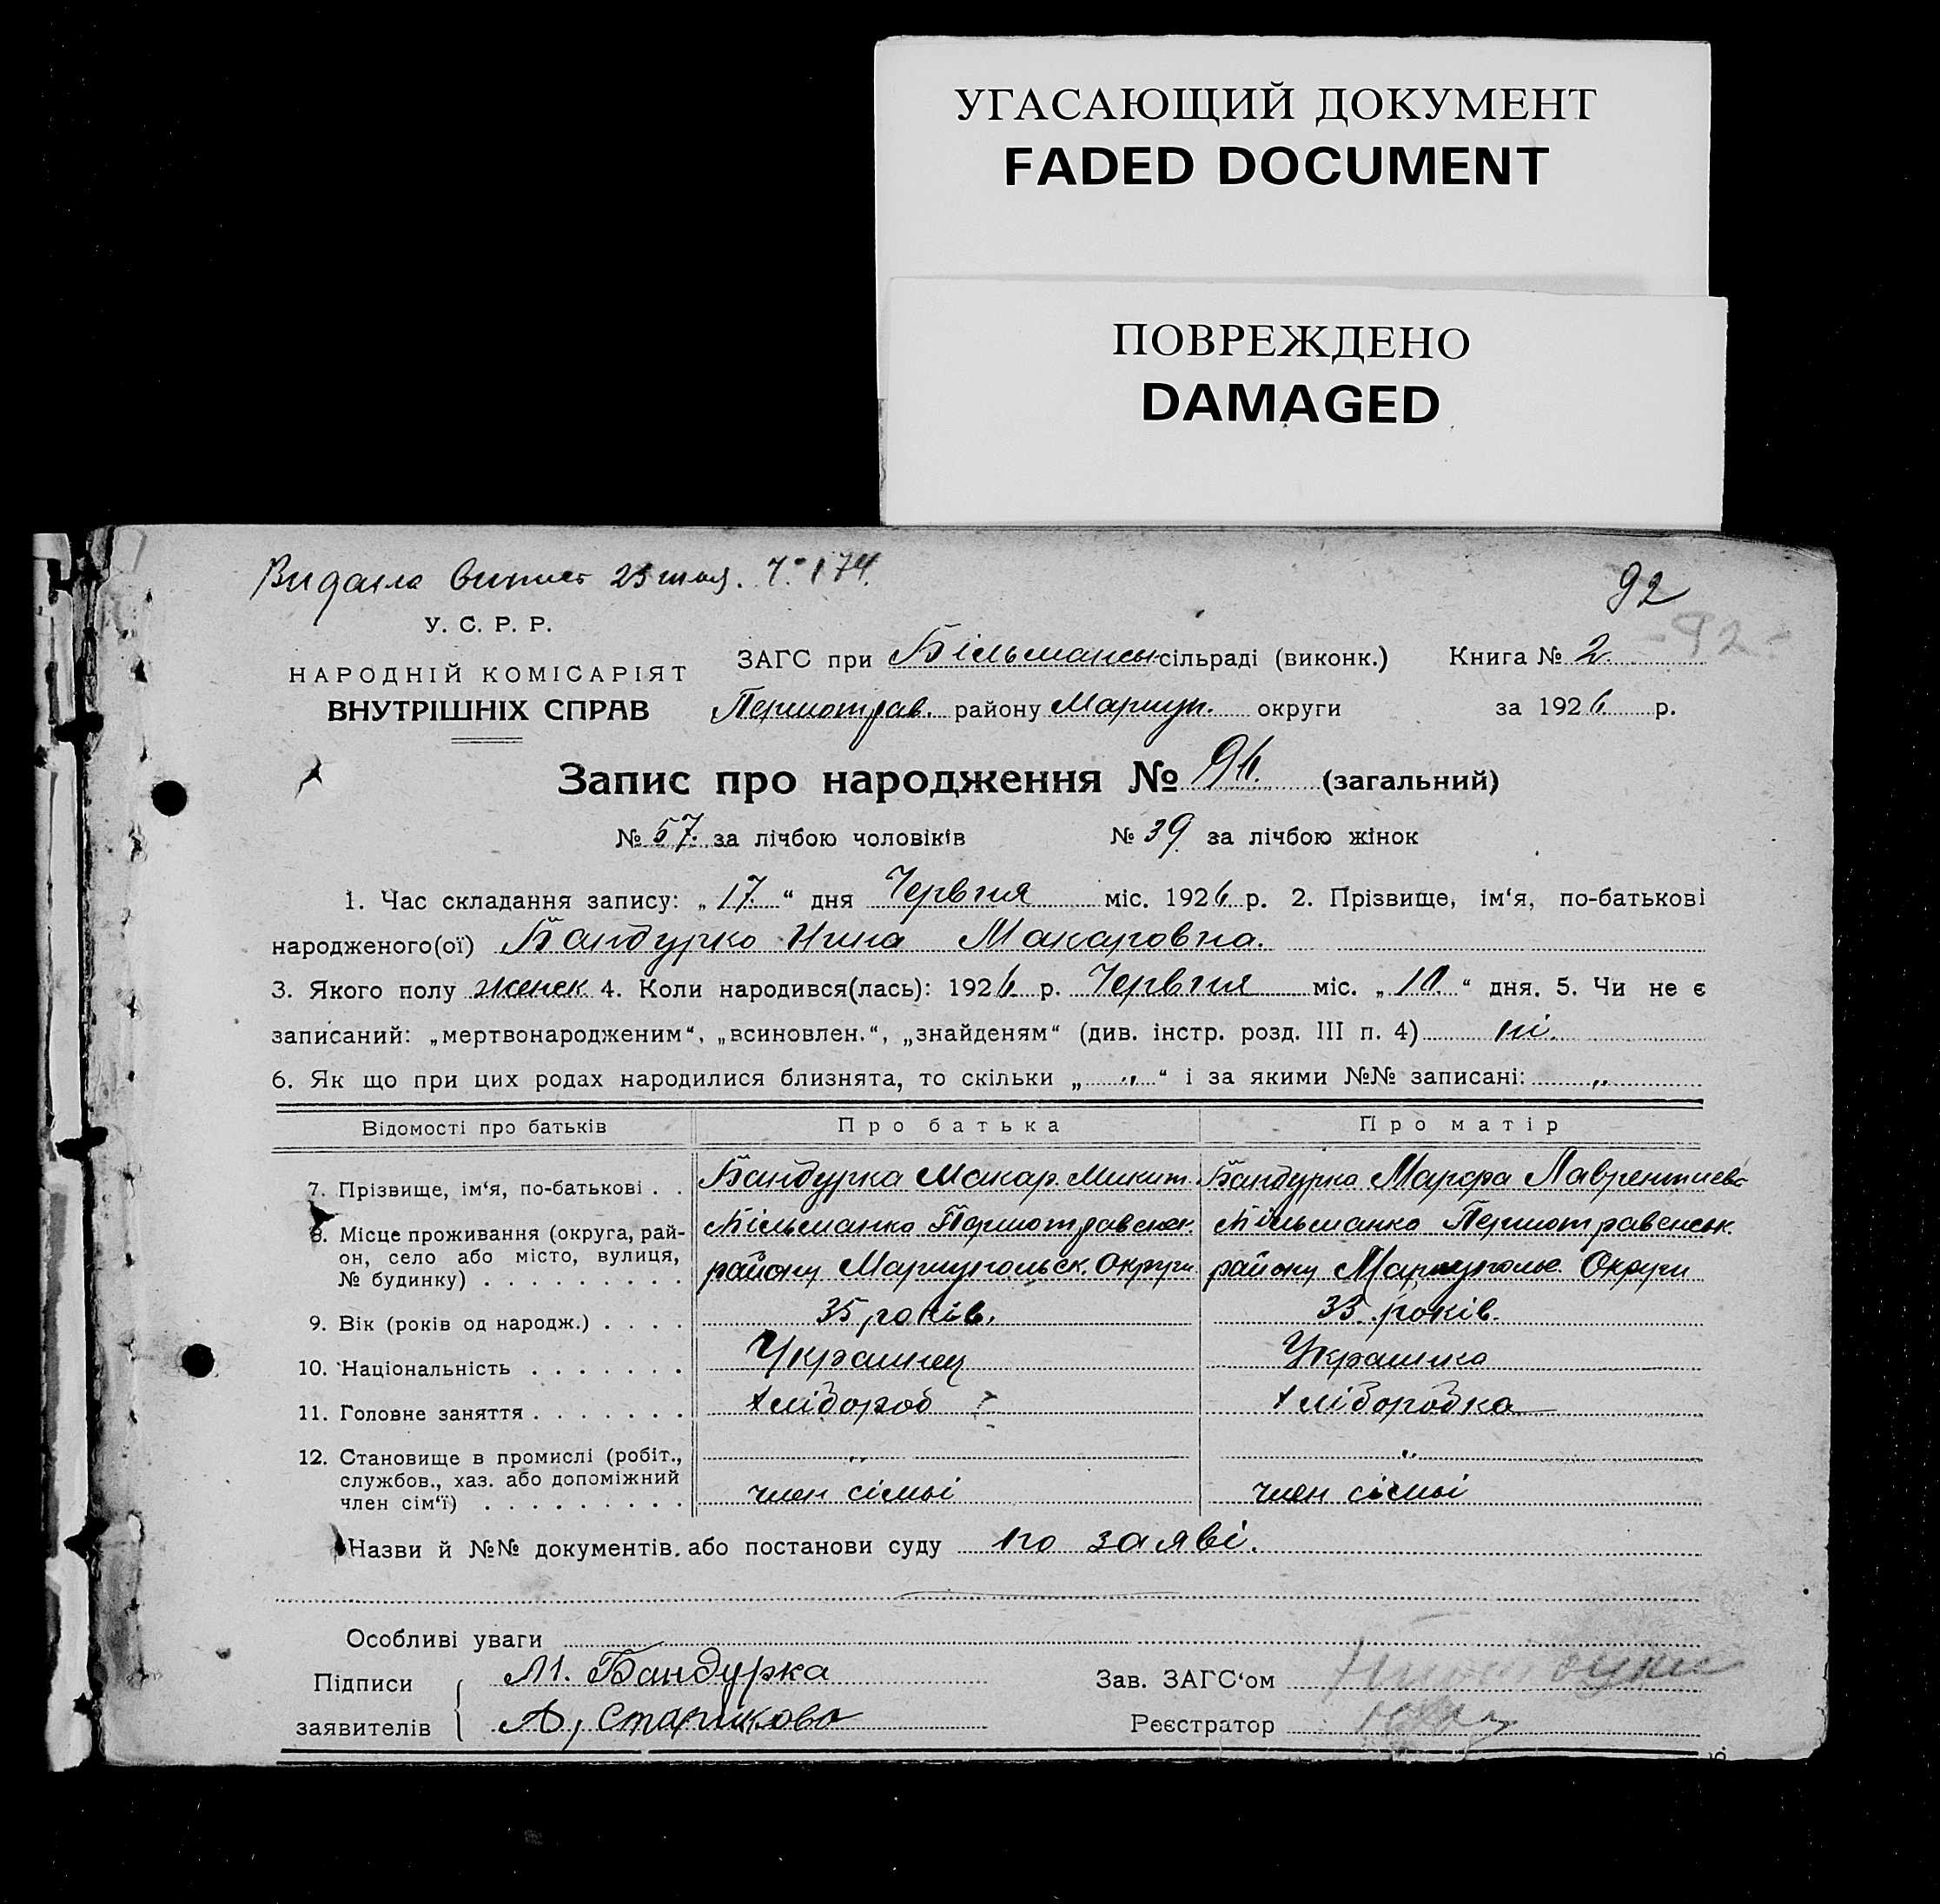 УГАСАЮЩИЙ ДОКУМЕНТ
FADED DOCUMENT
ПОВРЕЖДЕНО
DAMAGED
Видана випис 174.
92
-92-
У. С. Р. Р.
НАРОДНІЙ КОМІСАРІЯТ
ВНУТРІШНІХ СПРАВ
ЗАГС при Більманськ сільраді (виконк.) Книга № 2
Першотрав. району Маріуп. округи за 1926 р.
Запис про народження № 96. (загальний)
№ 57. за лічбою чоловіків № 39 за лічбою жінок
1. Час складання запису: „17.“ дня Червня міс. 1926 р. 2. Прізвище, ім‘я, по-батькові
народженого(ої) Бандурко Нина Макаровна.
3. Якого полу женск 4. Коли народився(лась): 1926 р. Червня міс. „10.“ дня. 5. Чи не є
записаний: „мертвонародженим“, „всиновлен.“, „знайденям“ (див. інстр. розд. III п. 4) ні.
6. Як що при цих родах народилися близнята, то скільки „ „ “ і за якими №№ записані: „
Відомості про батьків Про батька Про матір
7. Прізвище, ім‘я, по-батькові . . Бандурка Макар. Микит. Бандурка Марфа Лаврентиев
8. Місце проживання (округа, рай- Більманка Першотравенск. Більманка Першотравенськ.
он, село або місто, вулиця, району Мариупольск. Округи району Мариуполь. Округи
№ будинку) . . . . . . . . .
9. Вік (років од народж.) . . . . 35 років. 35 років.
10. Національність . . . . . . . Украинец Украинка
11. Головне заняття . . . . . . . Хлібороб Хлібородка
12. Становище в промислі (робіт., „ „
службов., хаз. або допоміжний
член сім‘ї) . . . . . . . . . член сімьі член сімьі
Назви й №№ документів. або постанови суду по заяві.
Особливі уваги
Підписи М. Бандурка Зав. ЗАГС‘ом
заявителів А, Старикова Реєстратор